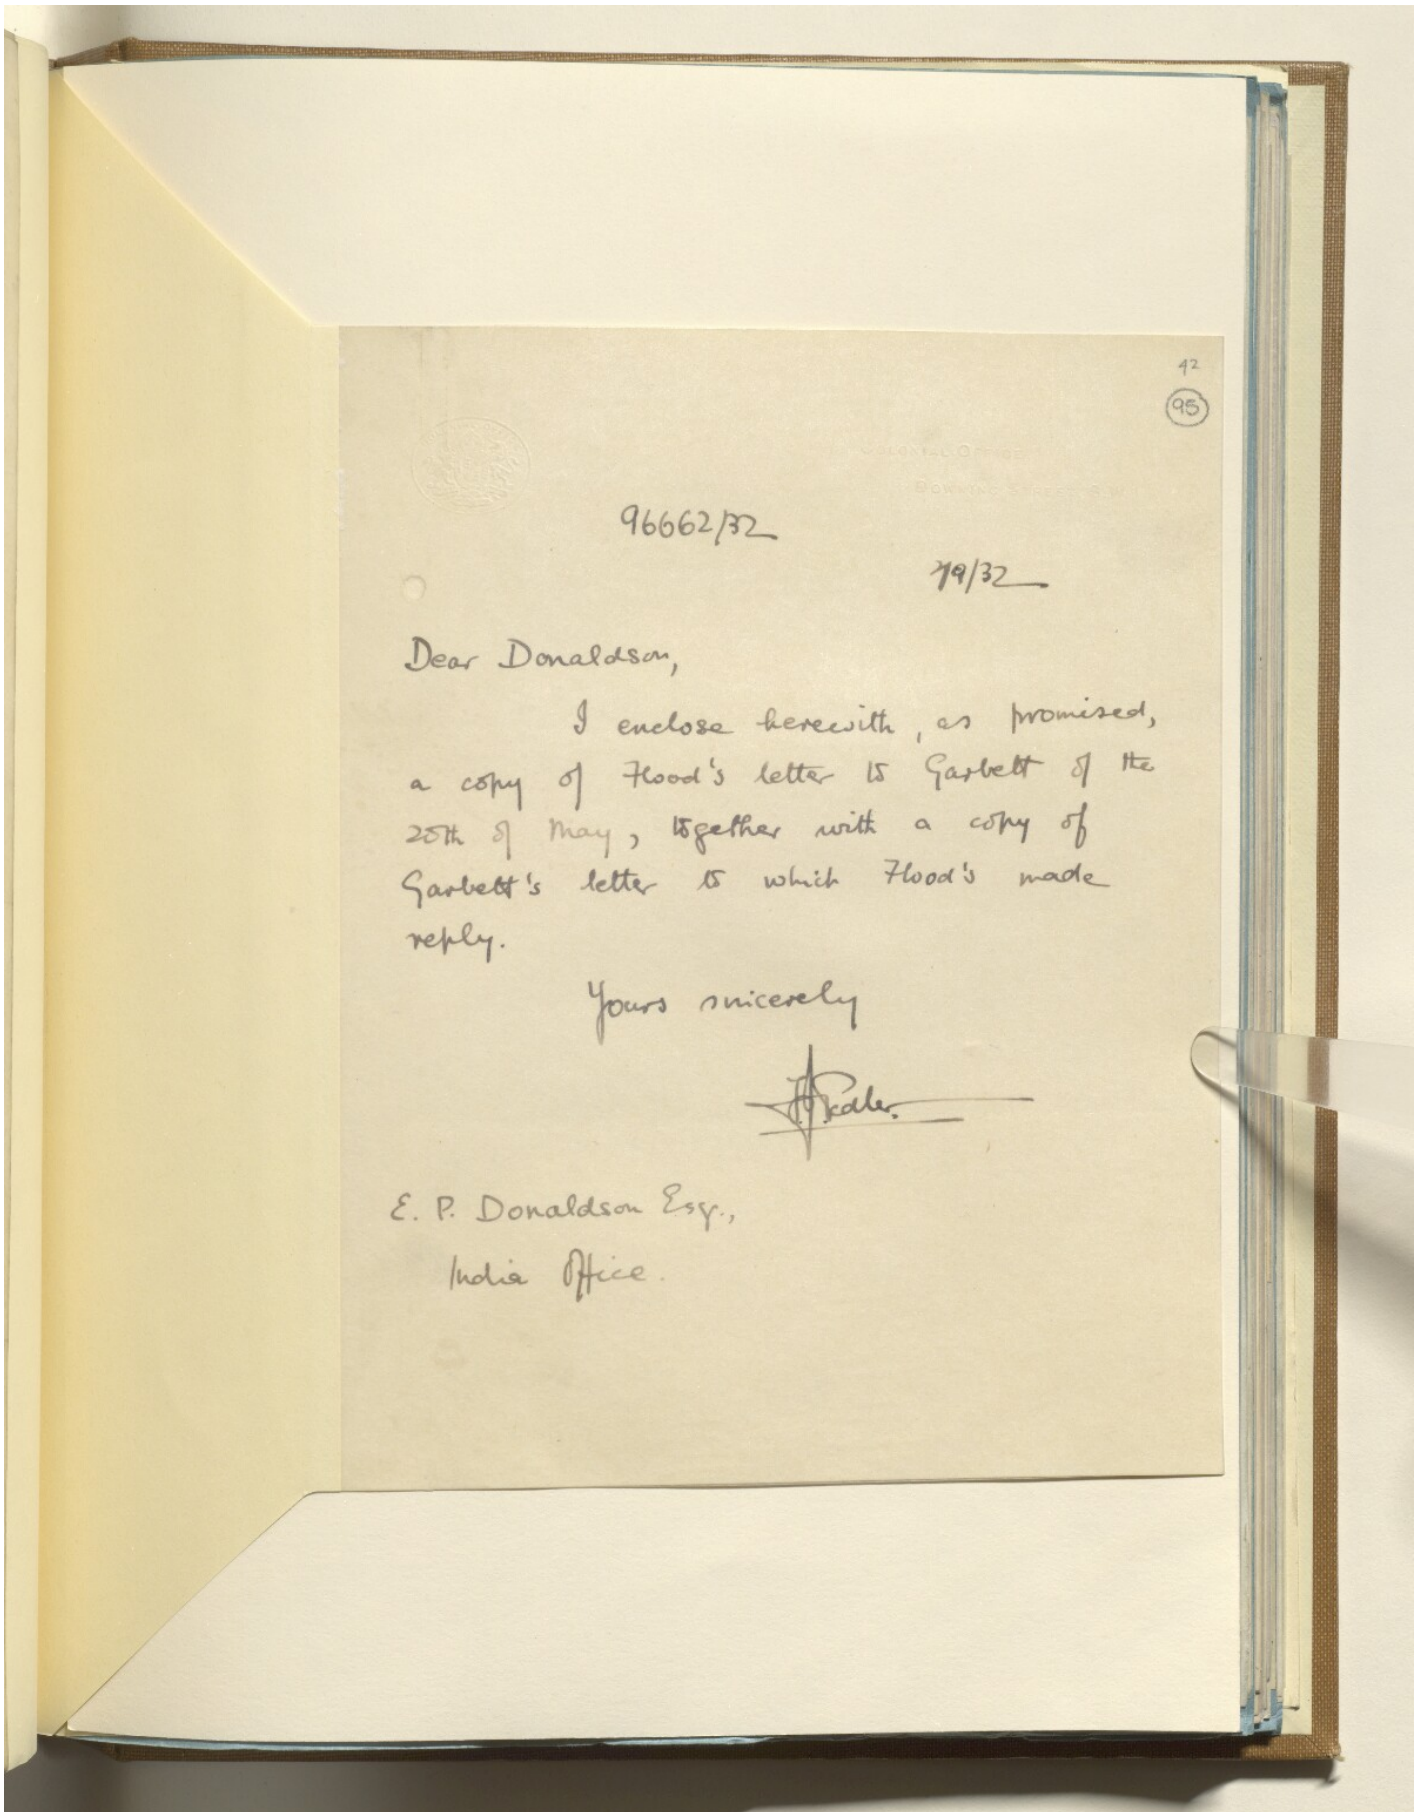 42
95
COLONIAL OFFICE
DOWNING STREET, S.W.1
96662/32
7/9/32
Dear Donaldson,
I enclose herewith, as promised,
a copy of Flood's letter to Garbett of the
20th of May, together with a copy of
Garbett's letter to which Flood's made
reply.
Yours sincerely
Pedler.
E. P. Donaldson Esqr.,
India Office.